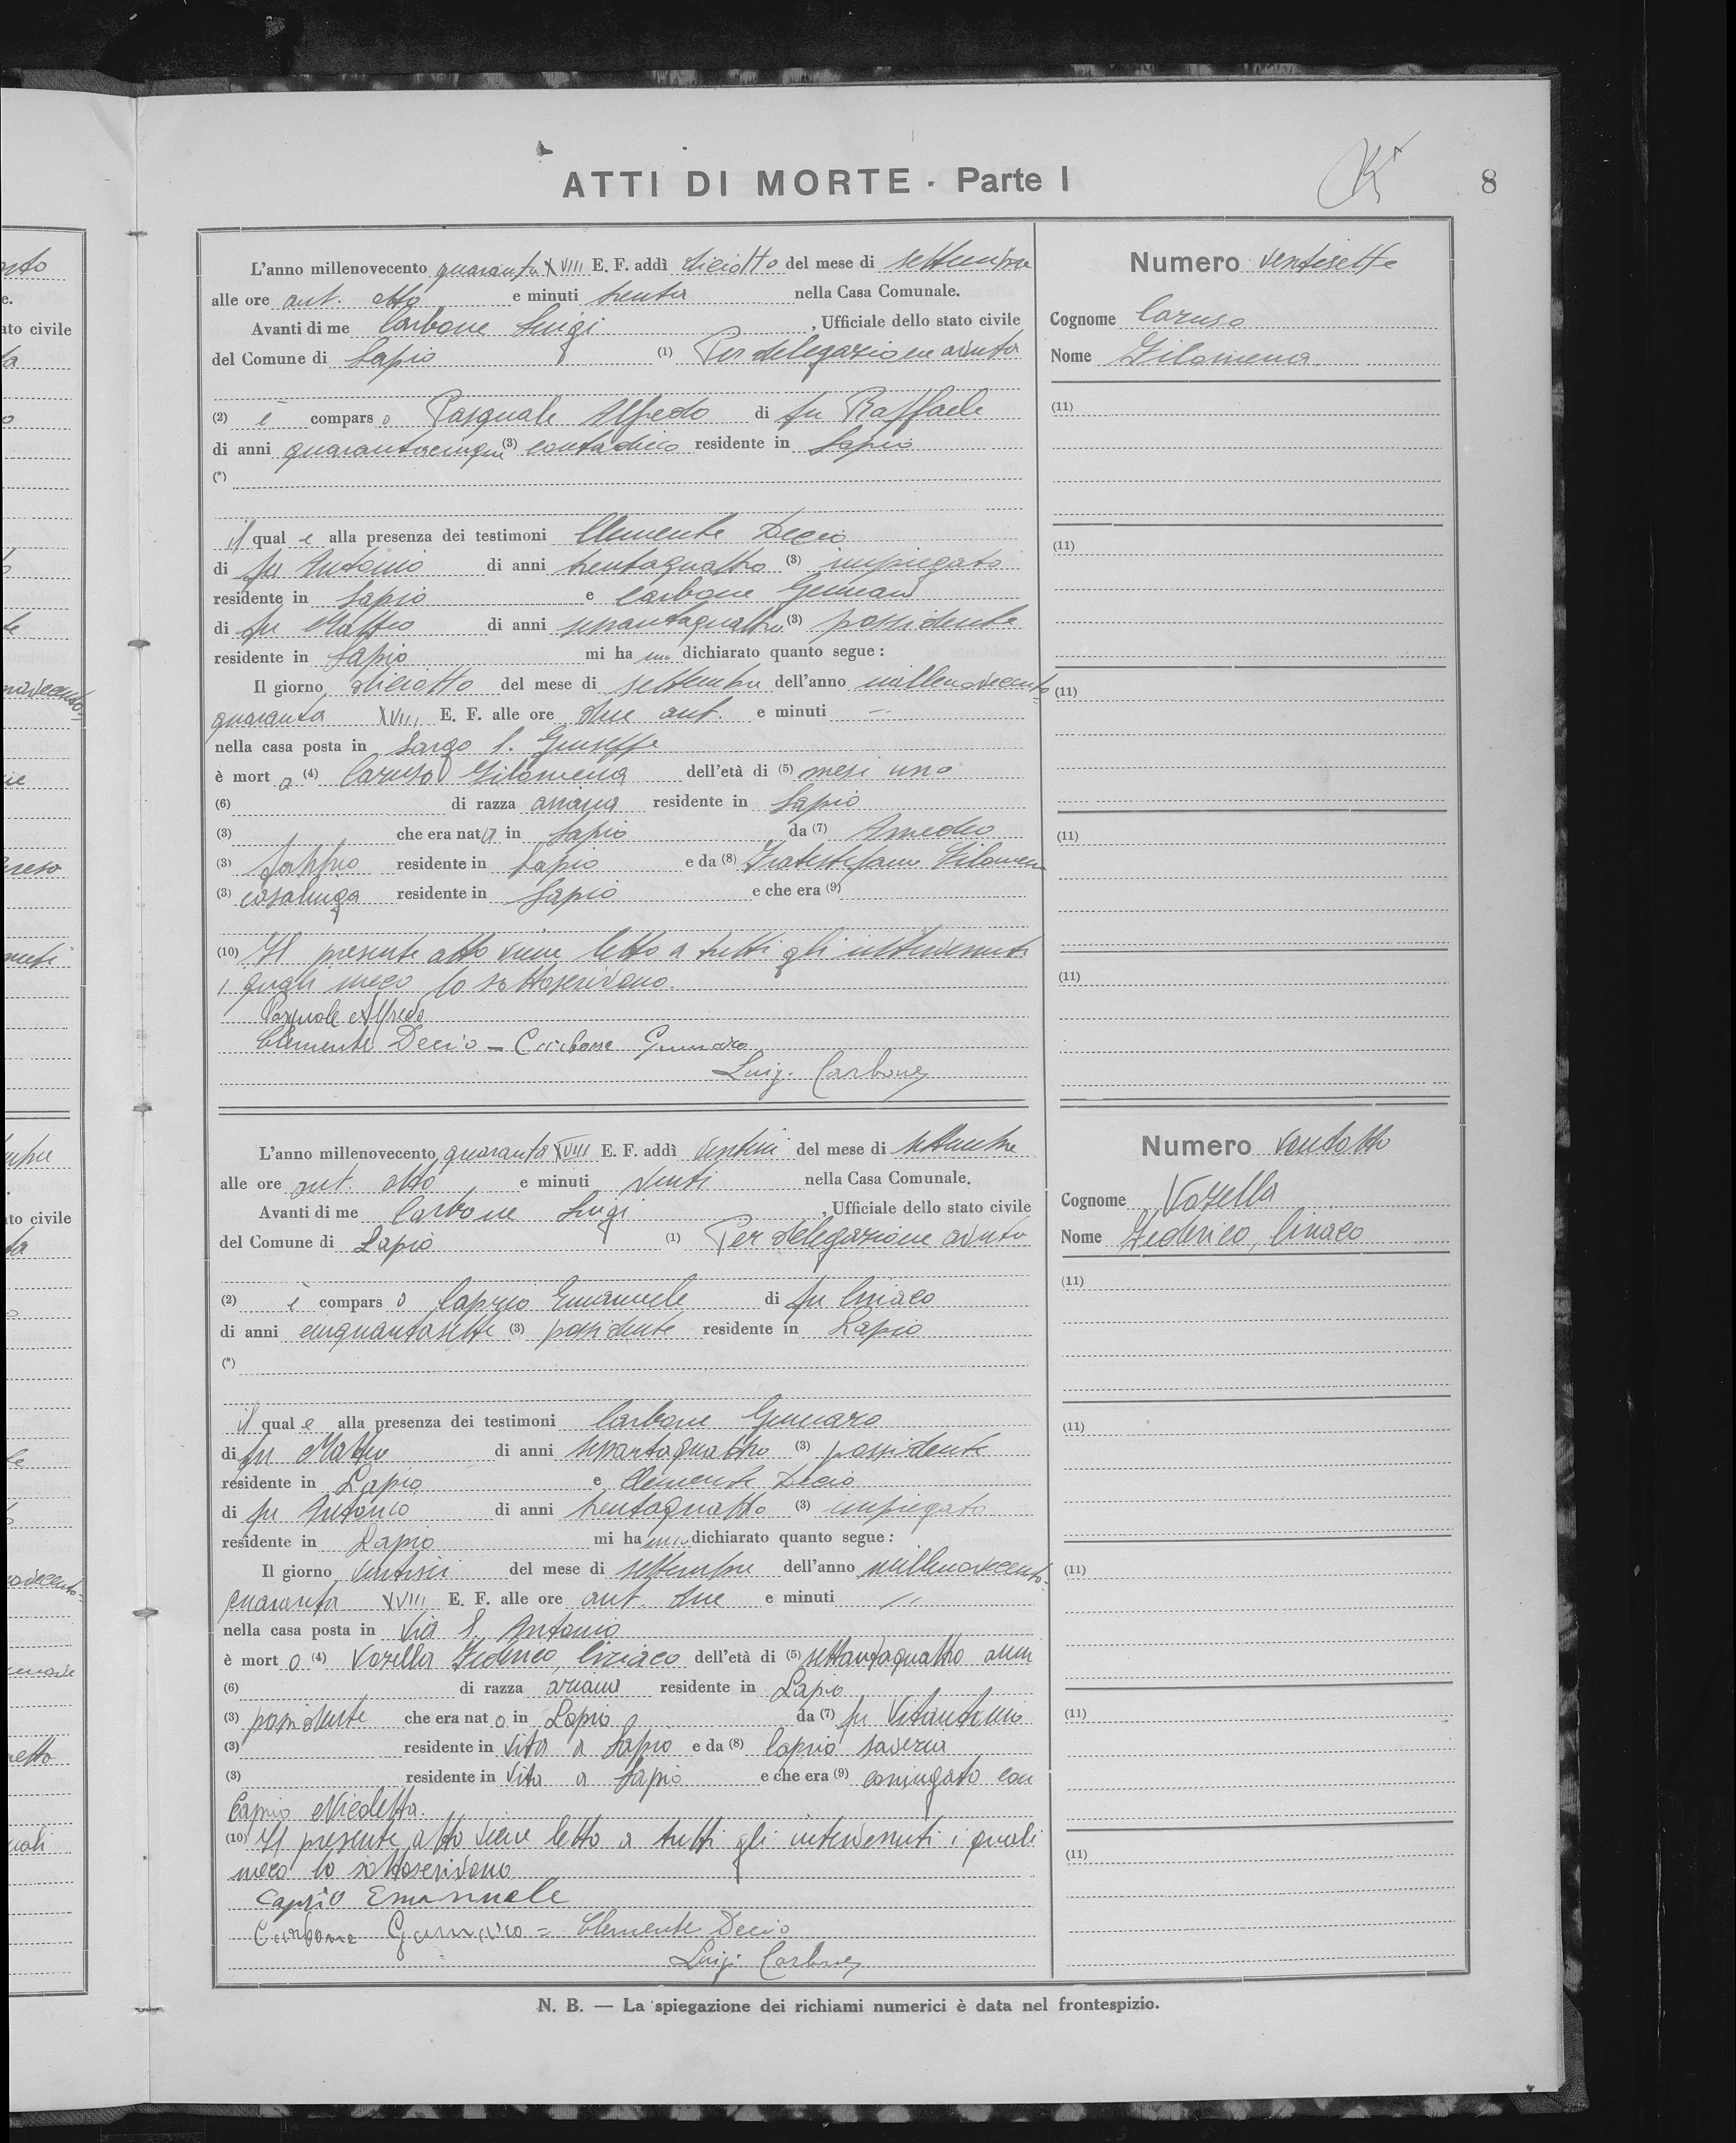 ATTI DI MORTE - Parte I
8
L'anno millenovecento quaranta XVIII E. F. addì diciotto del mese di settembre
alle ore ant. otto e minuti trenta nella Casa Comunale.
Avanti di me Carbone Luigi , Ufficiale dello stato civile
del Comune di Lapio (1) Per delegazione avuta
(2) è compars o Pasquale Alfredo di fu Raffaele
di anni quarantacinque (3) contadino residente in Lapio
(*)
il qual e alla presenza dei testimoni Clemente Decio
di fu Antonio di anni trentaquattro (3) impiegato
residente in Lapio e Carbone Gennaro
di fu Matteo di anni sessantaquattro (3) possidente
residente in Lapio mi ha dichiarato quanto segue :
Il giorno diciotto del mese di settembre dell'anno millenovecento
quaranta XVIII E. F. alle ore due ant. e minuti —
nella casa posta in Largo S. Giuseppe
è mort a (4) Caruso Filomena dell'età di (5) mesi uno
(6) di razza ariana residente in Lapio
(3) che era nat a in Lapio da (7) Amedeo
(3) residente in Lapio e da (8) Filomena
(3) casalinga residente in Lapio e che era (9)
(10) Il presente atto viene letto a tutti gli intervenuti
i quali meco lo sottoscrivono.
Pasquale Alfredo
Clemente Decio - Carbone Gennaro
Luigi Carbone
Numero ventisette
Cognome Caruso
Nome Filomena
(11)
(11)
(11)
(11)
(11)
L'anno millenovecento quaranta XVIII E. F. addì ventisei del mese di settembre
alle ore ant. otto e minuti venti nella Casa Comunale.
Avanti di me Carbone Luigi , Ufficiale dello stato civile
del Comune di Lapio (1) Per delegazione avuta
(2) è compars o Caprio Emanuele di fu Ciriaco
di anni cinquantasette (3) possidente residente in Lapio
(*)
il qual e alla presenza dei testimoni Carbone Gennaro
di fu Matteo di anni sessantaquattro (3) possidente
residente in Lapio e Clemente Decio
di fu Antonio di anni trentaquattro (3) impiegato
residente in Lapio mi ha dichiarato quanto segue :
Il giorno ventisei del mese di settembre dell'anno millenovecento-
quaranta XVIII E. F. alle ore ant. due e minuti //
nella casa posta in Via S. Antonio
è mort o (4) Vozella Federico, Ciriaco dell'età di (5) settantaquattro anni
(6) di razza ariana residente in Lapio
(3) possidente che era nat o in Lapio da (7) fu Vitantonio
(3) residente in vita a Lapio e da (8) Caprio Saveria
(3) residente in vita a Lapio e che era (9) coniugato con
Caprio Nicoletta.
(10) Il presente atto viene letto a tutti gli intervenuti i quali
meco lo sottoscrivono
Caprio Emanuele
Carbone Gennaro = Clemente Decio
Luigi Carbone
Numero ventotto
Cognome Vozella
Nome Federico, Ciriaco
(11)
(11)
(11)
(11)
(11)
N. B. — La spiegazione dei richiami numerici è data nel frontespizio.